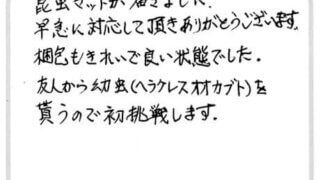 昆虫マットが届きました.
早急に対応して頂きありがとうございます.
梱包もきれいで良い状態でした.
友人から幼虫(ヘラクレスオオカブト)を
貰うので初挑戦します.